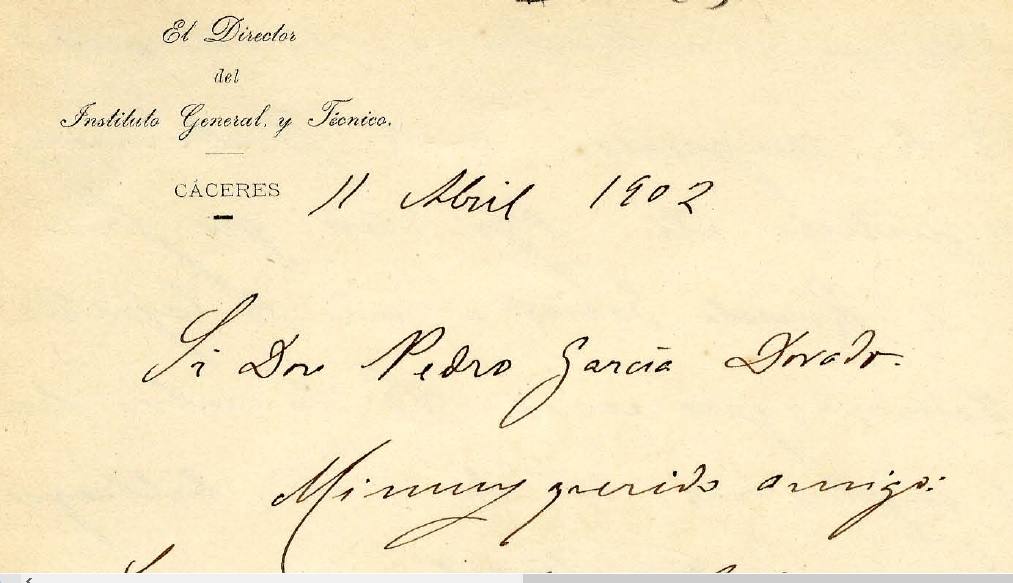 El Director
del
Instituto General. y Técnico.
CÁCERES 11 Abril 1902
Sr Don Pedro García Dorado.
Mi muy querido amigo: